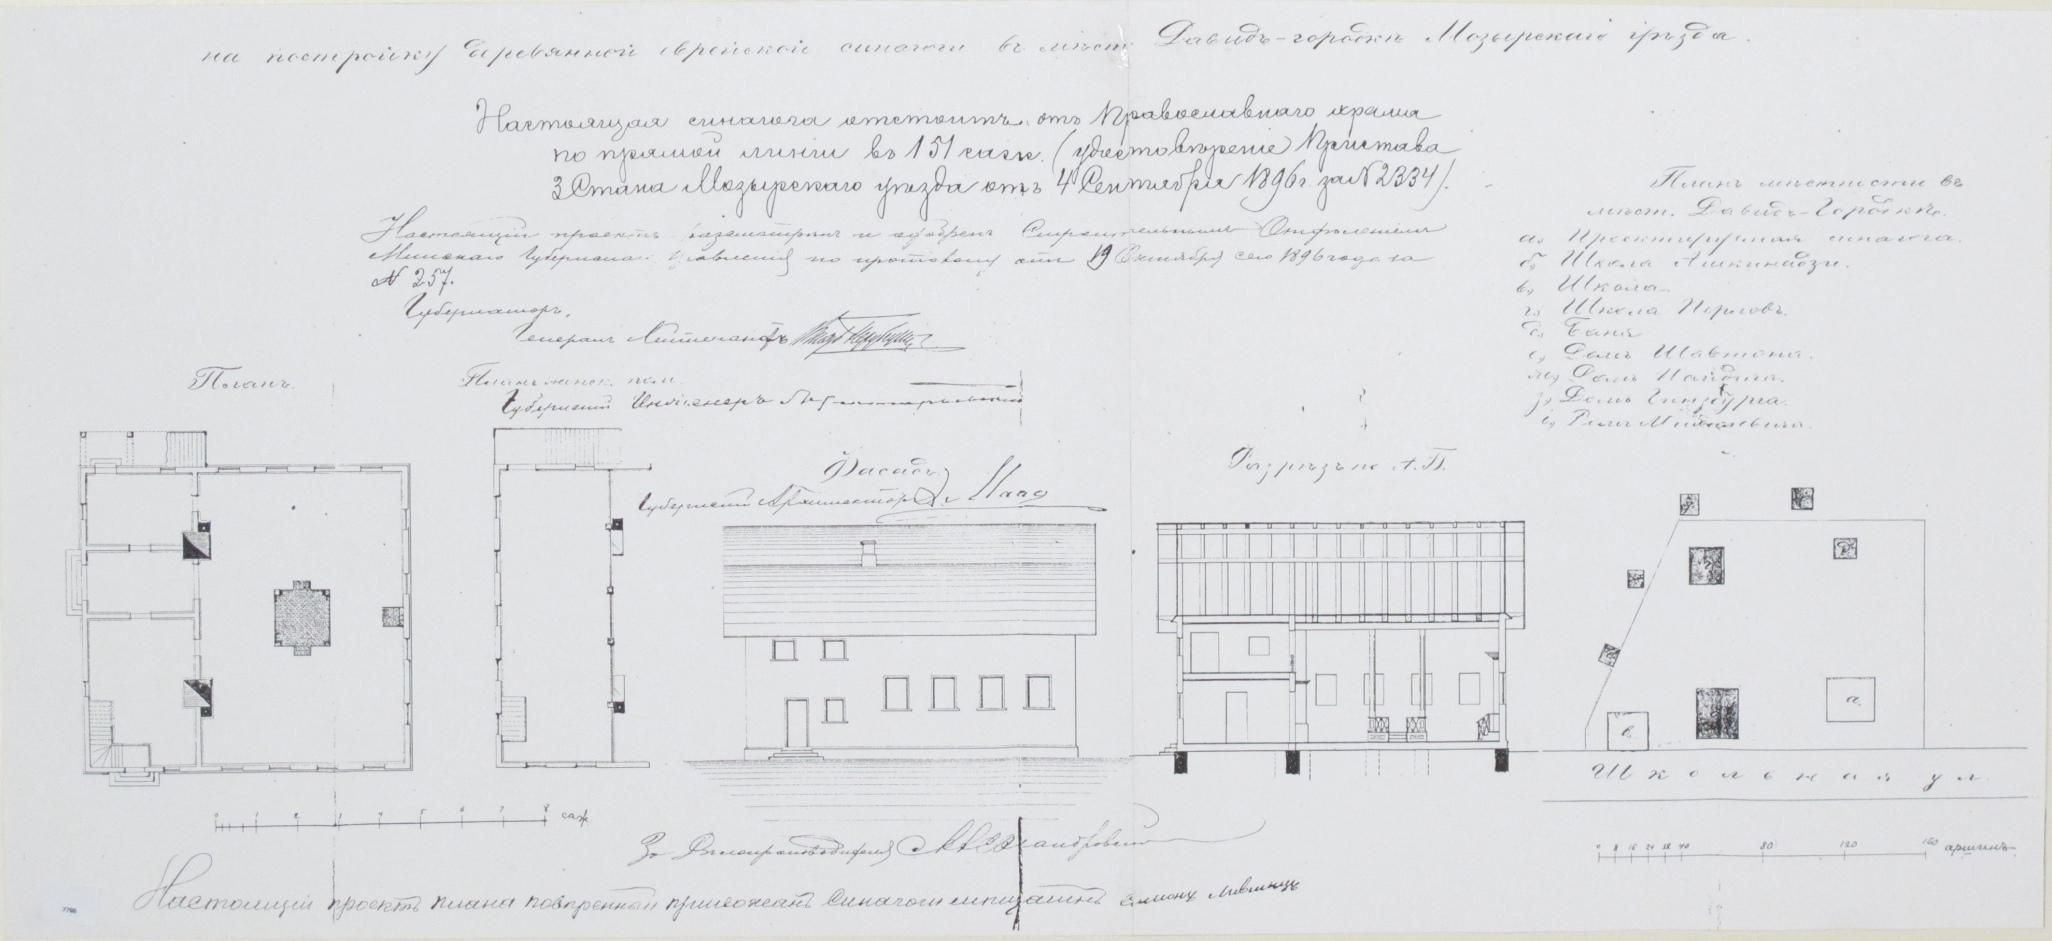 на постройку деревянной еврейской синагоги въ мѣст. Давидъ-городкѣ Мозырскаго уѣзда.
Настоящая синагога отстоитъ отъ Православнаго храма
по прямой линіи въ 151 саж. (удостовѣреніе Пристава
3 Стана Мозырскаго уѣзда отъ 4 Сентября 1896 г. за № 2334).
Настоящій проектъ разсмотрѣнъ и одобренъ Строительнымъ Отдѣленіемъ
Минскаго Губернскаго Правленія по протоколу отъ 19 Октября сего 1896 года за
№ 257.
Губернаторъ,
Генералъ Лейтенантъ
Планъ.
Губернскій Инженеръ
Фасадъ
Губернскій Архитекторъ
Разрѣзъ по А.Б.
Планъ мѣстности въ
мѣст. Давидъ-Городкѣ.
а, Проектируемая синагога.
б, Школа
в, Школа.
г, Школа
д, Баня
е, Домъ
ж, Домъ
з, Домъ Гинзбурга.
а.
в.
Школьная ул.
0 1 2 3 4 5 6 7 8 саж.
0 8 16 24 32 40 80 120 160 аршинъ
За Дѣлопроизводителя
Настоящій проектъ плана повѣренный прихожанъ синагоги
7786